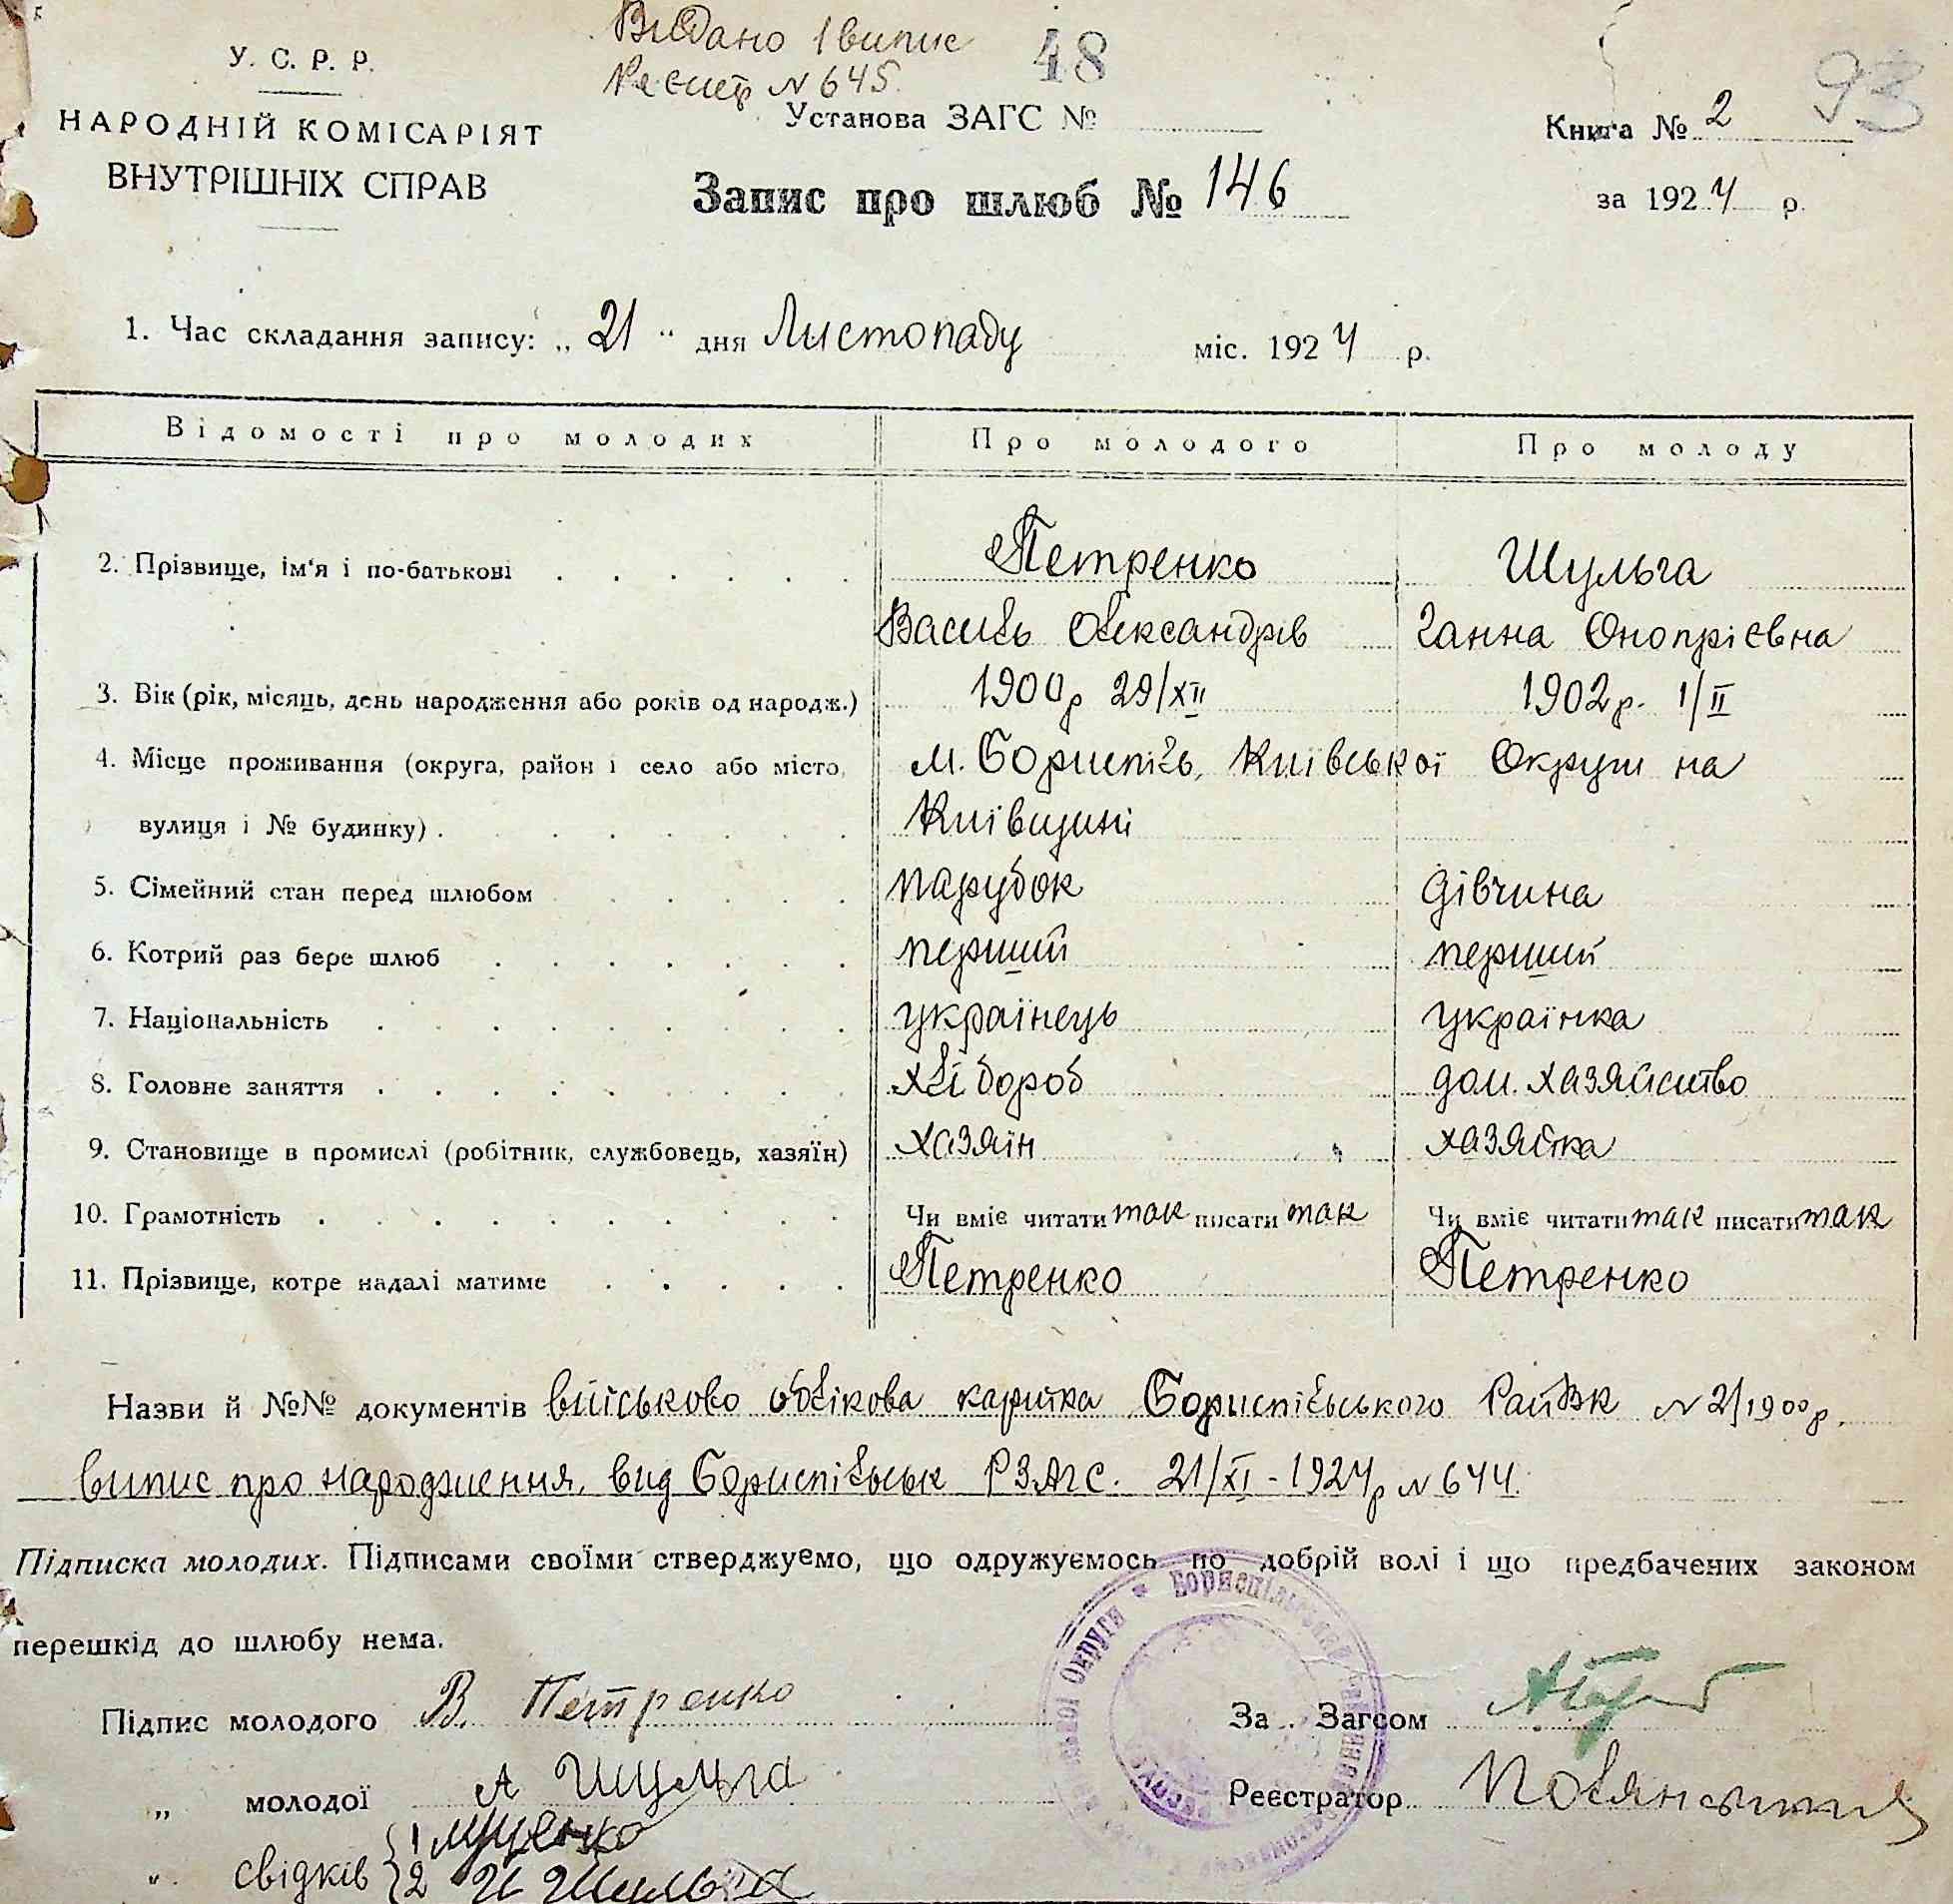 Видано 1 випис
Реєстр N 645.
48
93
У. С. Р. Р.
НАРОДНІЙ КОМІСАРІЯТ
ВНУТРІШНІХ СПРАВ
Установа ЗАГС №
Книга № 2
Запис про шлюб № 146
за 1924 р.
1. Час складання запису: „ 21 “ дня Листопаду міс. 1924 р.
Відомості про молодих Про молодого Про молоду
2. Прізвище, ім'я і по-батькові Петренко Шульга
Василь Олександрів Ганна Онопрієвна
3. Вік (рік, місяць, день народження або років од народж.) 1900р 29/XII 1902р. 1/II
4. Місце проживання (округа, район і село або місто, м. Бориспіль, Київської Округи на
вулиця і № будинку) Київщині
5. Сімейний стан перед шлюбом парубок дівчина
6. Котрий раз бере шлюб перший перший
7. Національність українець українка
8. Головне заняття хлібороб дом. хазяйство
9. Становище в промислі (робітник, службовець, хазяїн) хазяїн хазяйка
10. Грамотність Чи вміє читати так писати так Чи вміє читати так писати так
11. Прізвище, котре надалі матиме Петренко Петренко
Назви й №№ документів військово облікова картка Бориспільського РайВК N 2/1900р.
випис про народження, вид Бориспільськ РЗАГС. 21/XI-1924р N 644.
Підписка молодих. Підписами своїми стверджуємо, що одружуємось по добрій волі і що предбачених законом
перешкід до шлюбу нема.
Підпис молодого В. Петренко За Загсом
„ молодої А Шульга Реєстратор
„ свідків 1
2